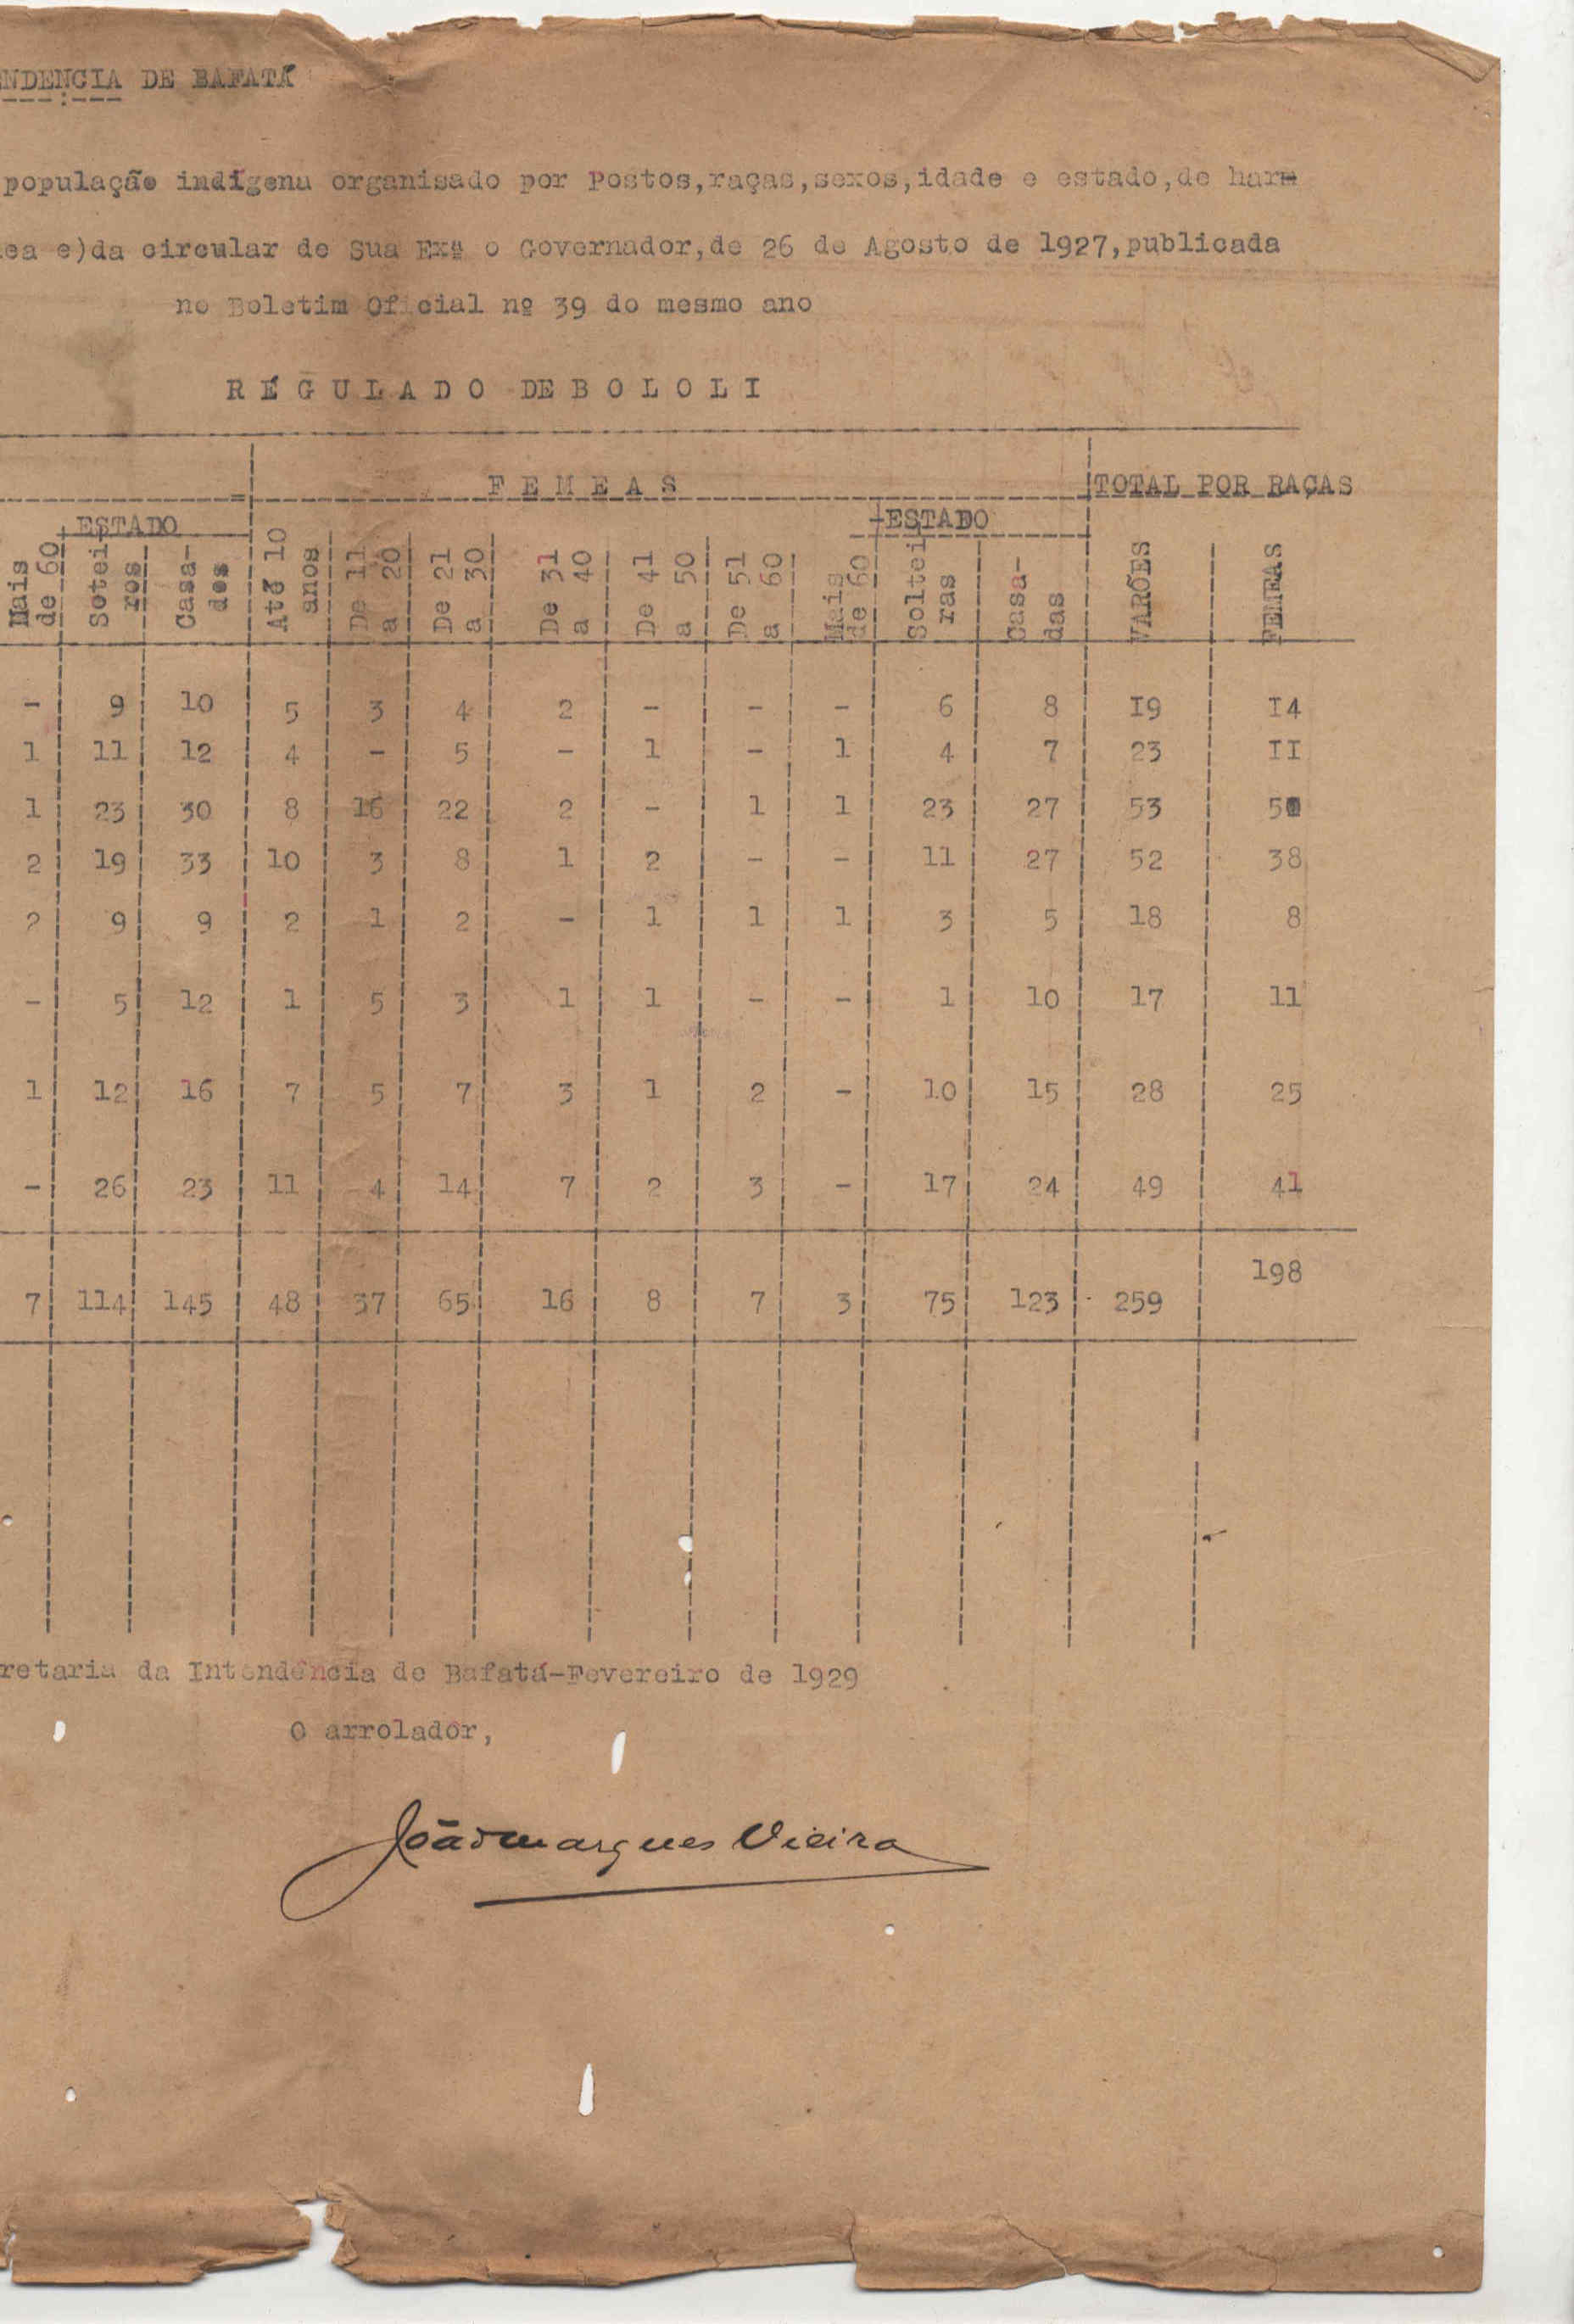 NDENCIA DE BAFATÁ
população indígena organisado por Postos,raças,sexos,idade e estado,de harm
ea e)da circular de Sua Exª o Governador,de 26 de Agosto de 1927,publicada
no Boletim Oficial nº 39 do mesmo ano
RÉGULADO DE BOLOLI
FEMEAS TOTAL POR RAÇAS
ESTADO ESTADO
Mais de 60 Sotei- ros Casa- dos Até 10 anos De 11 a 20 De 21 a 30 De 31 a 40 De 41 a 50 De 51 a 60 Mais de 60 Soltei ras Casa- das VARÕES FEMEAS
- 9 10 5 3 4 2 - - - 6 8 I9 I4
1 11 12 4 - 5 - 1 - 1 4 7 23 II
1 23 30 8 16 22 2 - 1 1 23 27 53 50
2 19 33 10 3 8 1 2 - - 11 27 52 38
2 9 9 2 1 2 - 1 1 1 3 5 18 8
- 5 12 1 5 3 1 1 - - 1 10 17 11
1 12 16 7 5 7 3 1 2 - 10 15 28 25
- 26 23 11 4 14 7 2 3 - 17 24 49 41
7 114 145 48 37 65 16 8 7 3 75 123 259 198
retaria da Intendência de Bafatá-Fevereiro de 1929
O arrolador,
João Marques Vieira